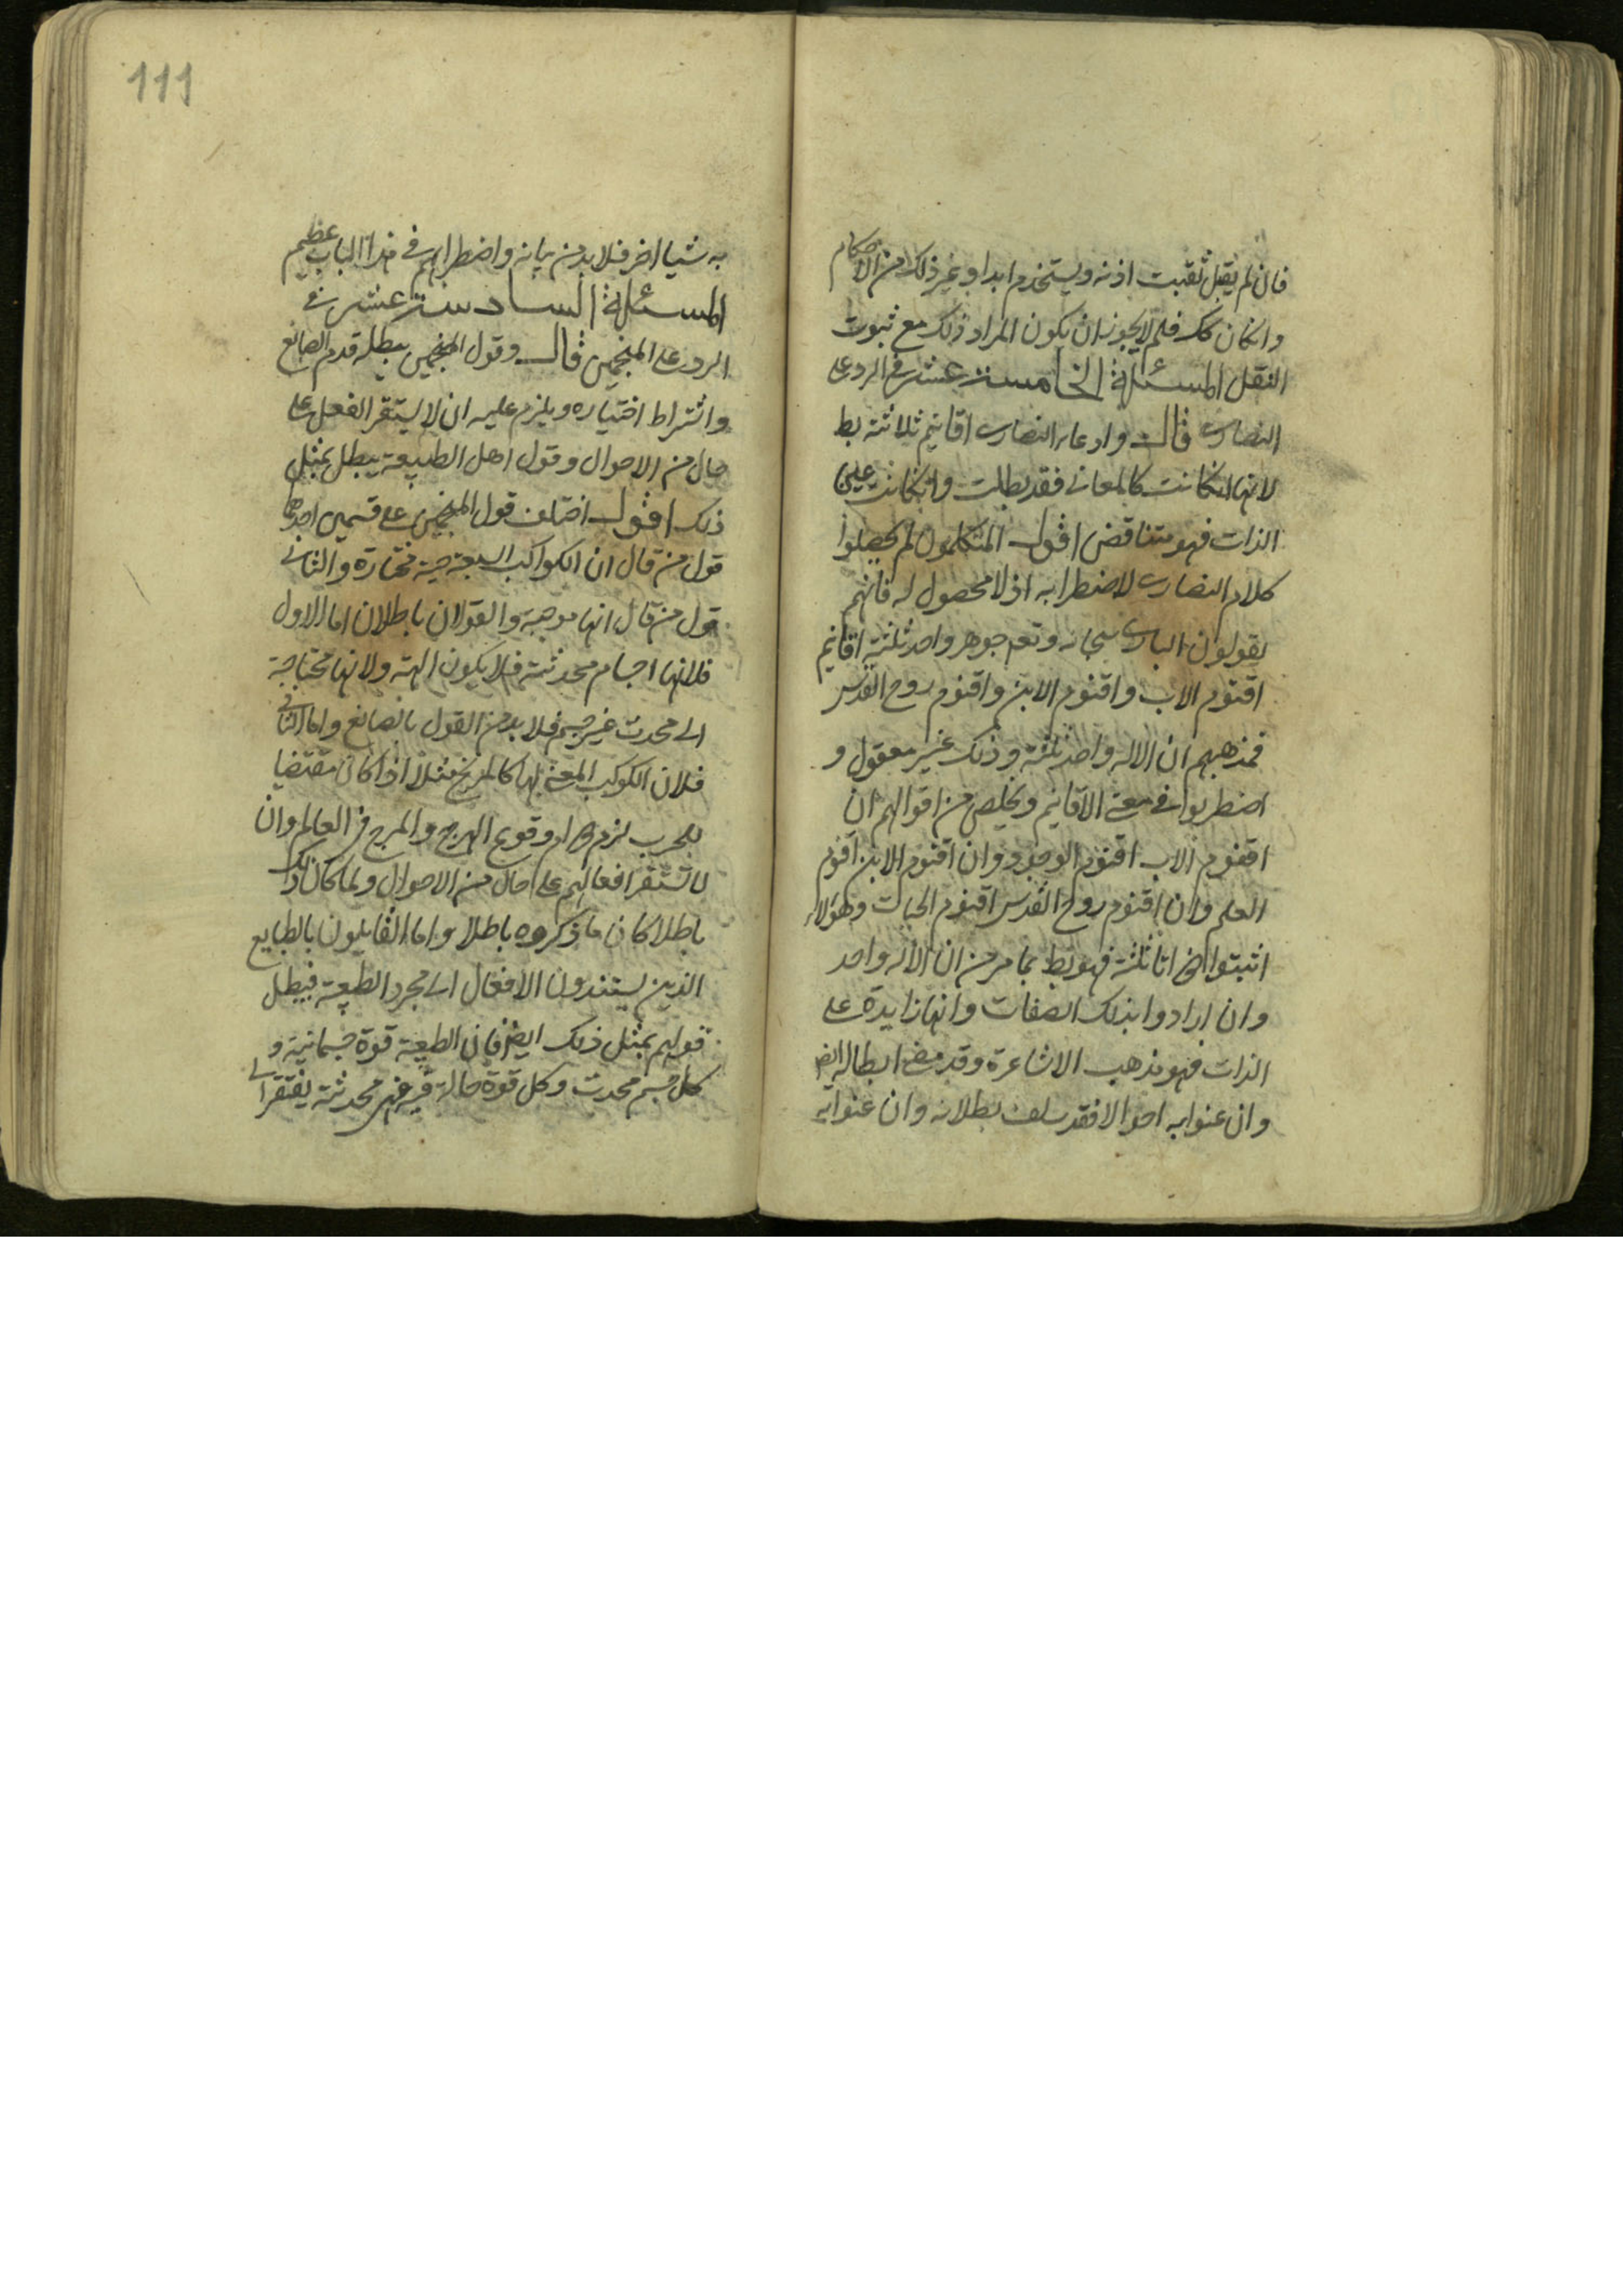 فان لم يقبل ثقبت اذنه ويستخدم ابدا وغير ذلك من الاحكام
وان كان كك فلم لا يجوز ان يكون المراد ذلك مع ثبوت
النقل المسئلة الخامسة عشر في الرد على
النصارى قال وادعاء النصارى اقانيم ثلاثة بط
لانها انكانت كالمعاني فقد بطلت وانكانت عين
الذات فهو متناقض اقول المتكلمون لم يحصلوا
كلام النصارى لاضطرابه اذ لا محصول له فانهم
يقولون البارى سبحانه وتعم جوهر واحد ثلثة اقانيم
اقنوم الاب واقنوم الابن واقنوم روح القدس
فمذهبهم ان الاله واحد ثلثة وذلك غير معقول و
اضطربوا في معنى الاقانيم ويخلص من اقوالهم ان
اقنوم الاب اقنوم الوجود وان اقنوم الابن اقنوم
العلم وان اقنوم روح القدس اقنوم الحيات وهؤلاء
اثبتوا ثلثة فهو بط بما مر من ان الاله واحد
وان ارادوا بذلك الصفات وانها زايدة على
الذات فهو مذهب الاشاعرة وقد مضى ابطاله ايض
وان عنوا به احوالا فقد سلف بطلانه وان عنوا به
111
به شيا اخر فلا بد من بيانه واضطرابهم في هذا الباب عظيم
المسئلة السادسة عشر في
الرد على المنجمين قال وقول المنجمين يبطله قدم الصانع
واشتراط اختياره ويلزم عليه ان لا يستقر الفعل على
حال من الاحوال وقول اهل الطبيعة يبطل بمثل
ذلك اقول اختلف قول المنجمين على قسمين احدهما
قول من قال ان الكواكب السبعة حية مختارة والثاني
قول من قال انها موجبة والقولان باطلان اما الاول
فلانها اجسام محدثة فلا يكون الهة ولانها محتاجة
الى محدث غير جسم فلا بد من القول بالصانع واما الثاني
فلان الكوكب المعنى بها كالمريخ مثلا اذا كان مقتضيا
للحرب لزم دوام وقوع الهرج والمرج في العالم وان
لا تستقر افعالهم على حال من الاحوال ولما كان ذلك
باطلا كان ما ذكروه باطلا واما القايلون بالطبايع
الذين يسندون الافعال الى مجرد الطبيعة فيبطل
قولهم بمثل ذلك ايض فان الطبيعة قوة جسمانية و
كل جسم محدث وكل قوة حالة فيه فهي محدثة يفتقر الى